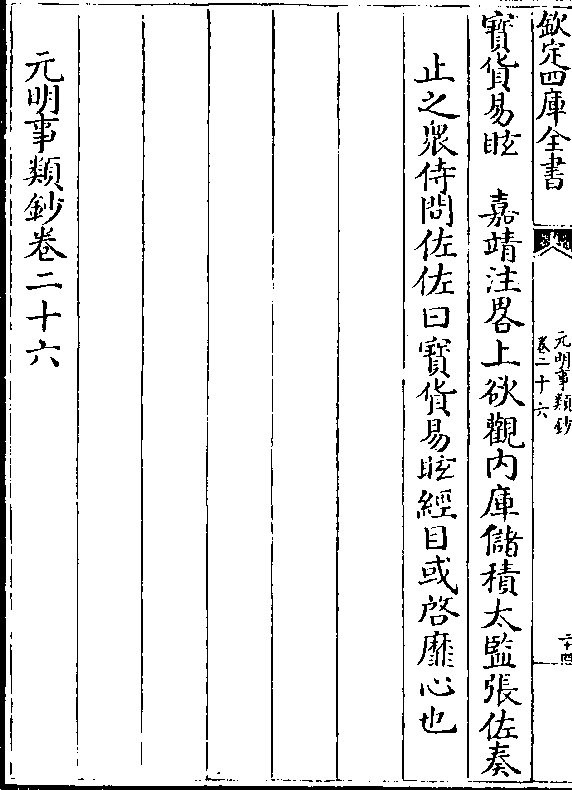 欽定四庫全書
元明事類鈔
卷二十六
二十四
寳貨易眩　嘉靖注畧上欲觀内庫儲積太監張佐奏
止之衆侍問佐佐曰寳貨易眩經目或啓靡心也
元明事類鈔卷二十六